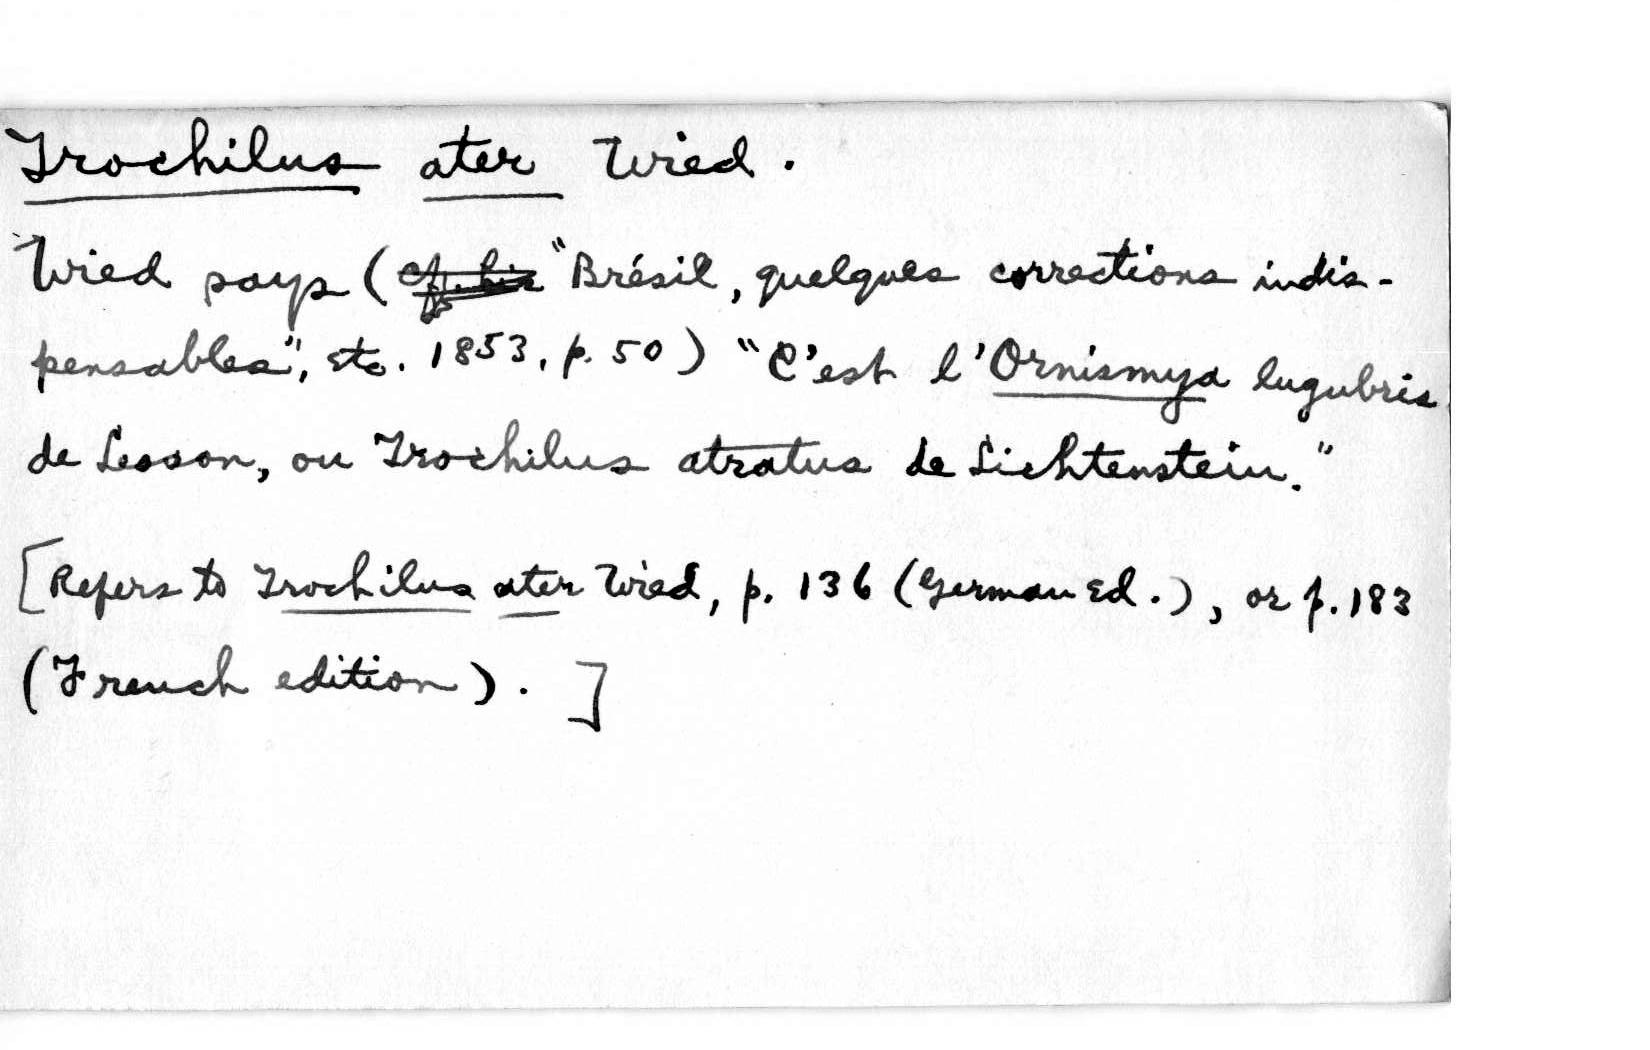 Trochilus ater Wied.
Wied says ( "Brésil, quelques corrections indis-
pensables", etc. 1853, p. 50) "C'est l'Ornismya lugubris
de Lesson, ou Trochilus atratus de Lichtenstein."
[Refers to Trochilus ater Wied, p. 136 (German Ed.), or p. 183
(French edition).]